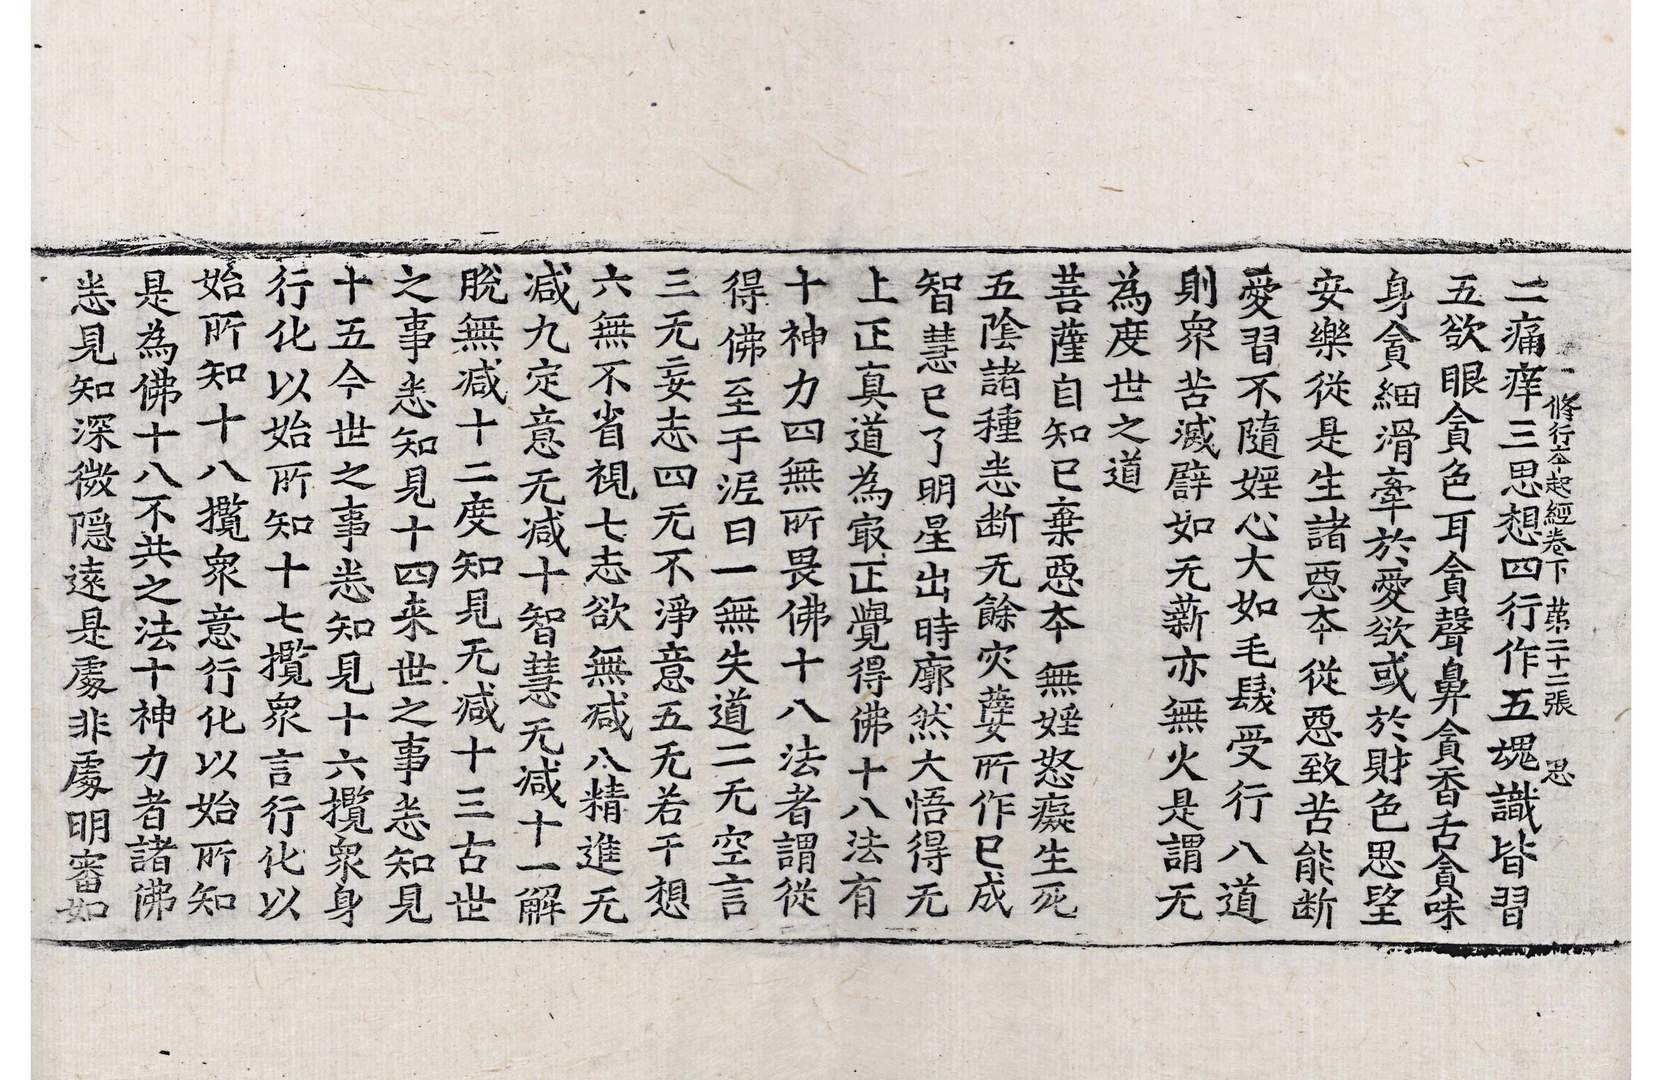 修行本起經卷下 第二十二張 思
二痛痒三思想四行作五塊識皆習
五欲眼貪色耳貪聲鼻貪香舌貪味
身貪細滑牽於愛欲或於財色思望
安樂從是生諸惡本從惡致苦能断
愛習不隨婬心大如毛髮受行八道
則衆苦滅譬如无薪亦無火是謂无
為度世之道
菩薩自知已棄惡本無婬怒癡生死
五陰諸種悉断无餘灾㜸所作已成
智慧已了明星出時廓然大悟得无
上正真道為㝡正覺得佛十八法有
十神力四無所畏佛十八法者謂從
得佛至于泥曰一無失道二无空言
三无妄志四无不淨意五无若干想
六無不省視七志欲無减八精進无
减九定意无减十智慧无减十一解
脫無减十二度知見无减十三古世
之事悉知見十四来世之事悉知見
十五今世之事悉知見十六攬衆身
行化以始所知十七攬衆言行化以
始所知十八攬衆意行化以始所知
是為佛十八不共之法十神力者諸佛
悉見知深微隱遠是處非處明審如